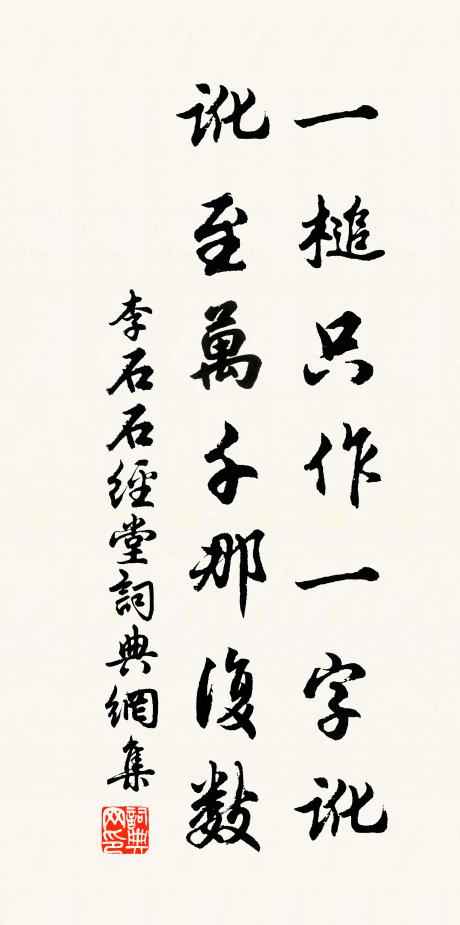 一槌只作一字訛
訛至萬千那復数
李石石經堂詞典網集
詞典网印